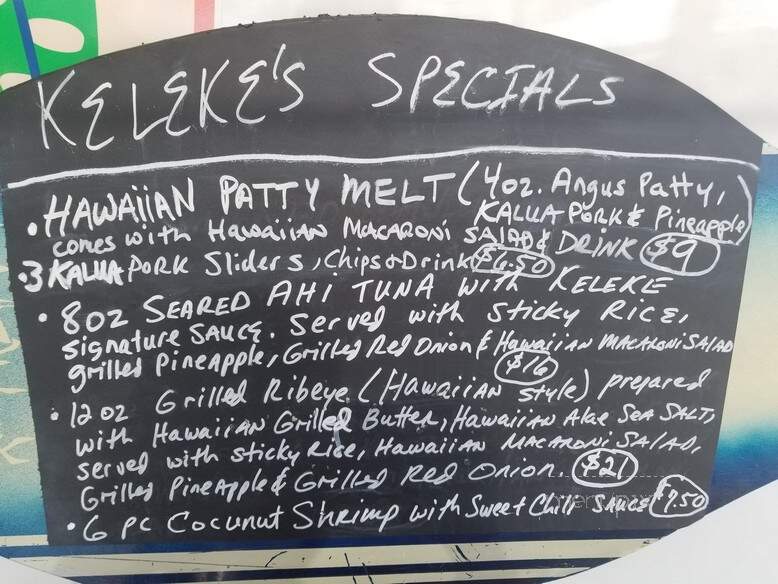 KELEKE'S SPECIALS
• HAWAIIAN PATTY MELT (4oz. Angus Patty,
KALUA PORK & Pineapple)
comes with HAWAIIAN MACARONI SALAD & DRINK $9
• 3 KALUA PORK Sliders, Chips & Drink $6.50
• 8oz SEARED AHI TUNA with KELEKE
signature SAUCE. Served with Sticky RICE,
grilled Pineapple, Grilled Red Onion & Hawaiian MACARONI SALAD
$16
• 12 oz Grilled Ribeye (HAWAIIAN style) prepared
with HAWAIIAN Grilled Butter, HAWAIIAN Alae SEA SALT,
served with sticky Rice, HAWAIIAN MACARONI SALAD,
Grilled Pineapple & Grilled Red Onion. $21
• 6 PC Cocunut Shrimp with Sweet Chili SAUCE $7.50